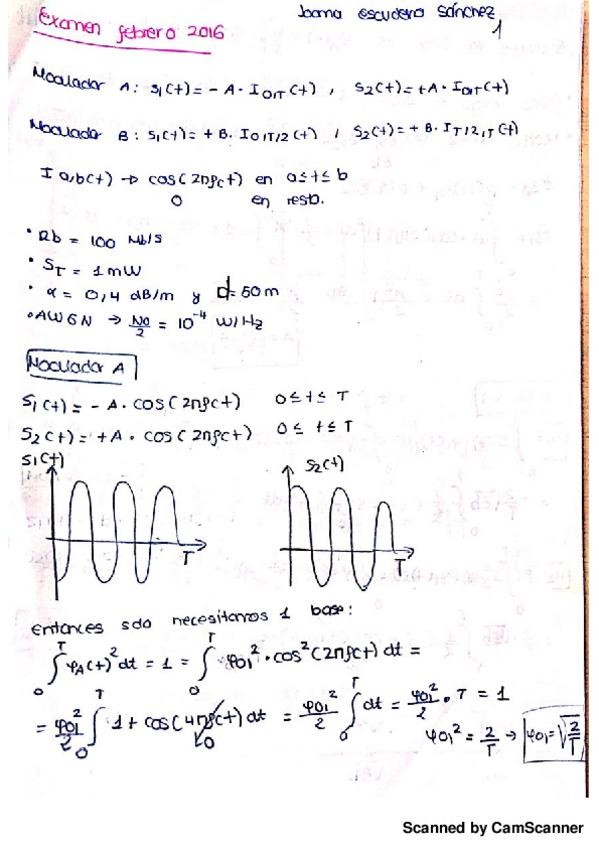 Joana escudero sánchez
1
Examen febrero 2016
Modulador A: S₁(t) = - A · I₀,T (t) , S₂(t) = +A · I₀,T (t)
Modulador B: S₁(t) = + B · I₀,T/2 (t) , S₂(t) = + B · I T/2,T (t)
I a,b(t) → cos(2πfct) en a≤t≤b
0 en resto.
• Rb = 100 Mb/s
• S_T = 1 mW
• α = 0,4 dB/m y d = 50 m
• AWGN → N0/2 = 10⁻⁴ W/Hz
Modulador A
S₁(t) = - A · cos(2πfct) 0 ≤ t ≤ T
S₂(t) = +A · cos(2πfct) 0 ≤ t ≤ T
S₁(t) S₂(t)
T T
entonces solo necesitamos 1 base:
∫₀ᵀ φA(t)² dt = 1 = ∫₀ᵀ φ01² · cos²(2πfct) dt =
= φ01²/2 ∫₀ᵀ 1 + cos(4πfct) dt = φ01²/2 ∫₀ᵀ dt = φ01²/2 · T = 1
0
φ01² = 2/T → φ01 = √(2/T)
Scanned by CamScanner